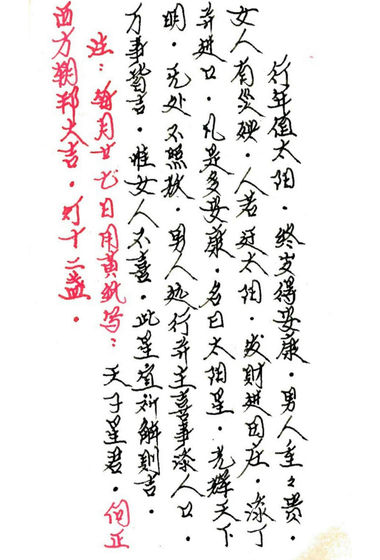 行年值太阳．终岁得安康．男人重々贵．
女人有災殃．人若迂太阳．发财进田庄．添丁
并进口．凡是多安康．名曰太阳星．光辉天下
明．无处不照扶．男人远行并主喜事添人口．
万事皆吉．惟女人不喜．此星宜祈解则吉．
注：每月廿七日用黄纸写：天子星君．向正
西方鞠邦大吉．灯十二盏．